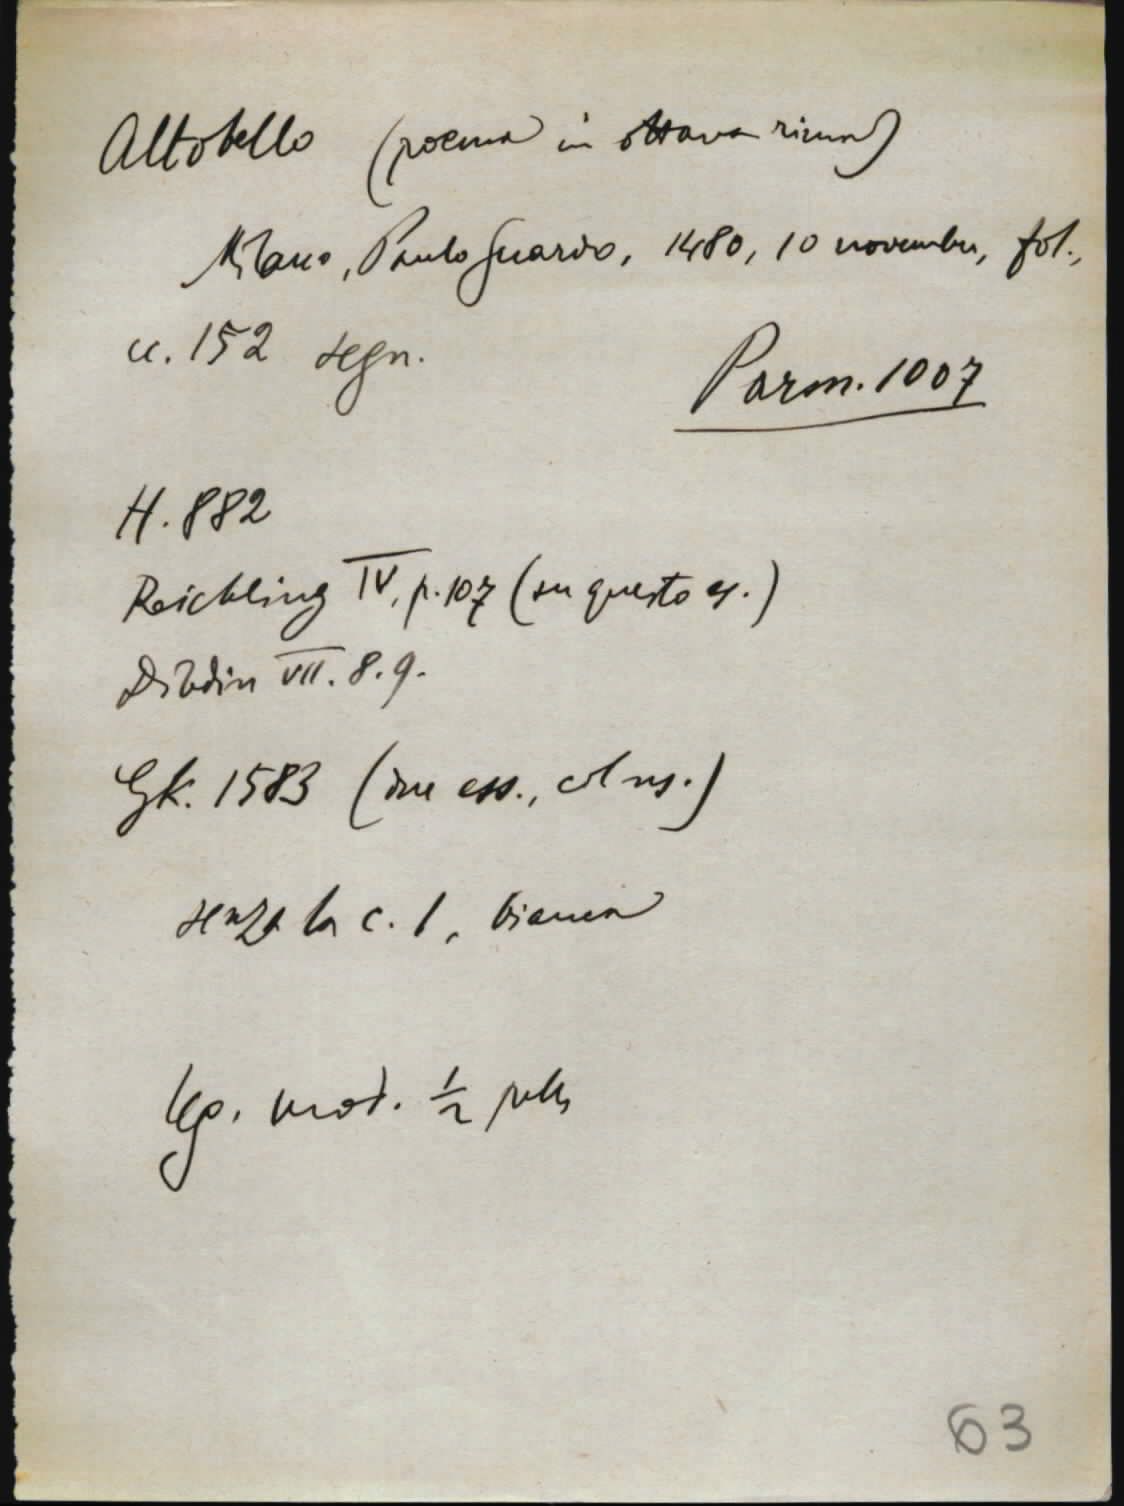 Altobello (poema in ottava rima)
Milano, Paulo Suardo, 1480, 10 novembre, fol.,
cc. 152 segn.
Parm. 1007
H. 882
Reichling IV, p. 107 (su questo es.)
Dibdin VII. 8. 9.
Gk. 1583 (due ess., col ns.)
senza la c. 1, bianca
leg. mod. 1/2 pelle
63